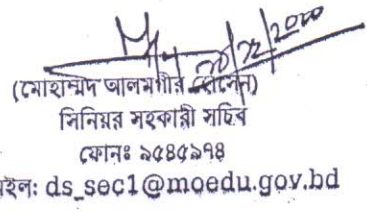 (মোহাম্মদ আলমগীর হোসেন)
সিনিয়র সহকারী সচিব
ফোনঃ ৯৫৪৫৯৭৪
মেইল: ds_sec1@moedu.gov.bd